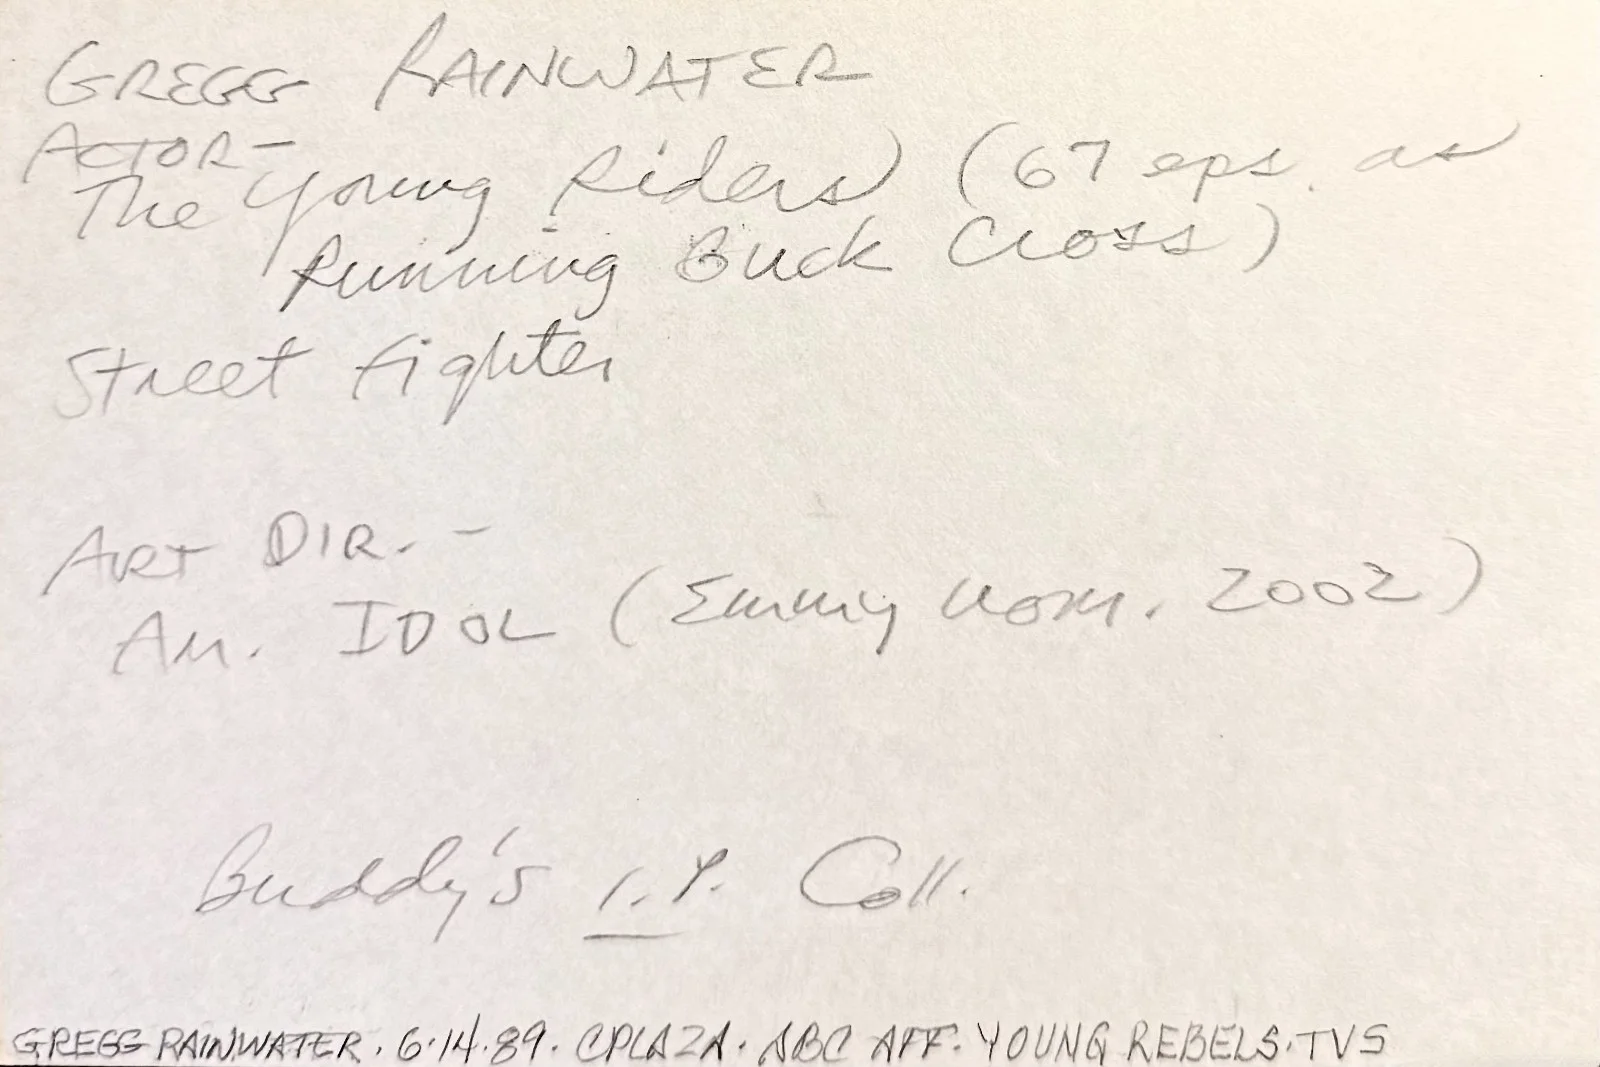 GREGG RAINWATER
ACTOR-
The Young Riders (67 eps. as
Running Buck Cross)
Street Fighter
ART DIR. -
AM. IDOL (Emmy nom. 2002)
Buddy's I.P. Coll.
GREGG RAINWATER. 6.14.89. CPLAZA. ABC AFF. YOUNG REBELS.TVS